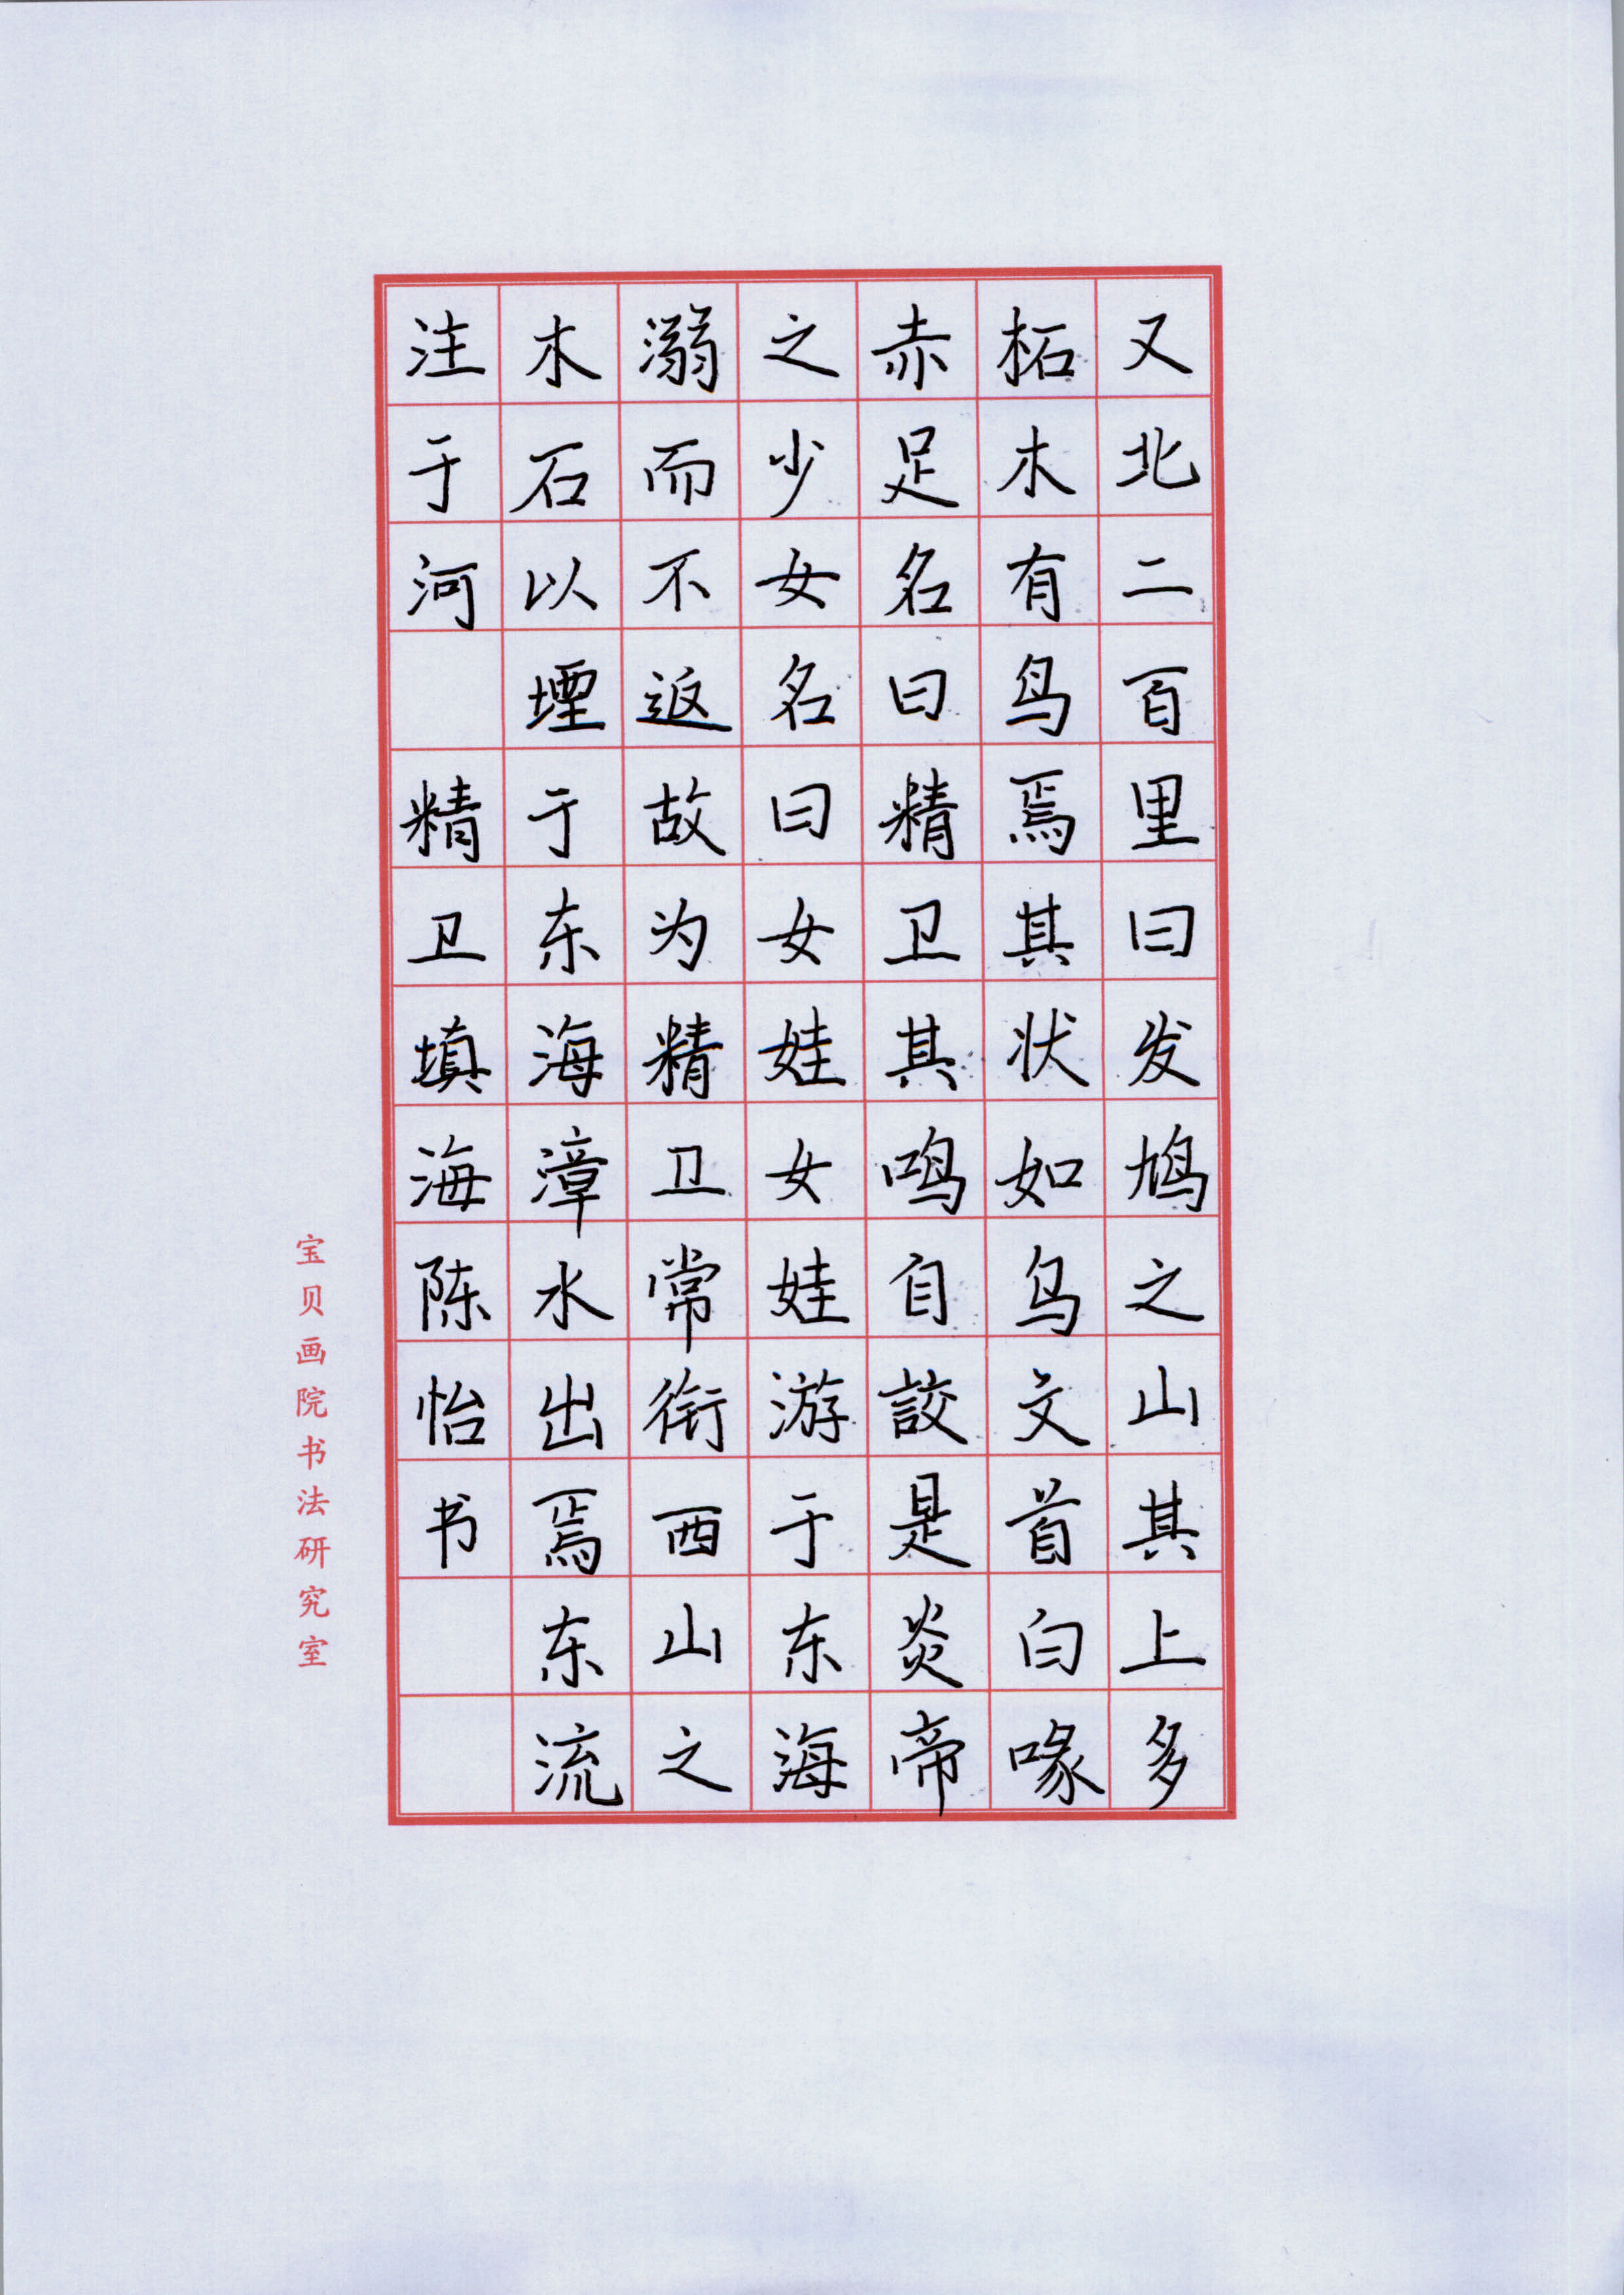 又北二百里曰发鸠之山其上多
柘木有鸟焉其状如乌文首白喙
赤足名曰精卫其鸣自詨是炎帝
之少女名曰女娃女娃游于东海
溺而不返故为精卫常衔西山之
木石以堙于东海漳水出焉东流
注于河 精卫填海陈怡书
宝贝画院书法研究室